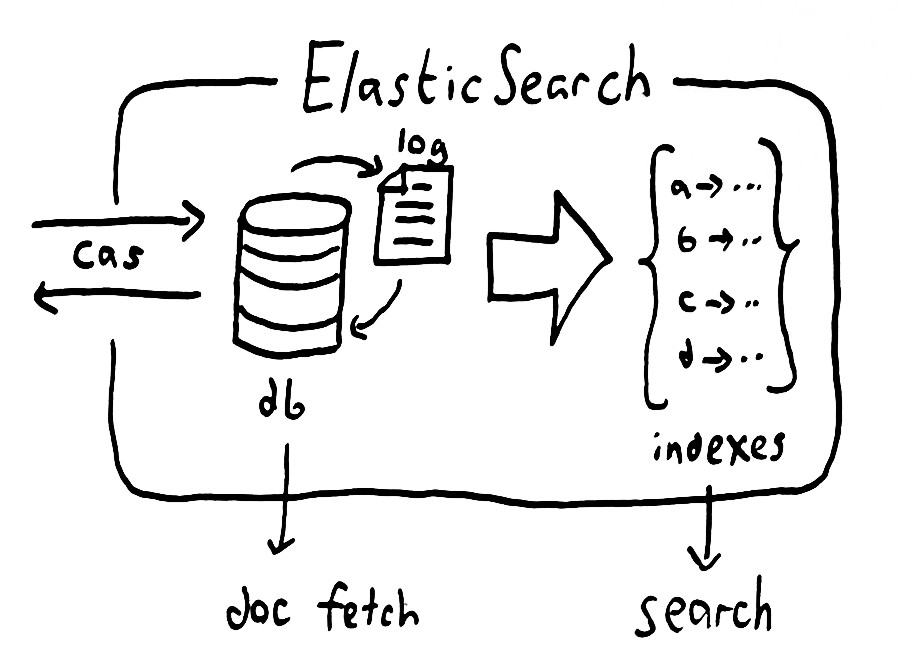 ElasticSearch
log
cas
a → ...
b → ..
c → ..
d → ..
db
indexes
doc fetch
search